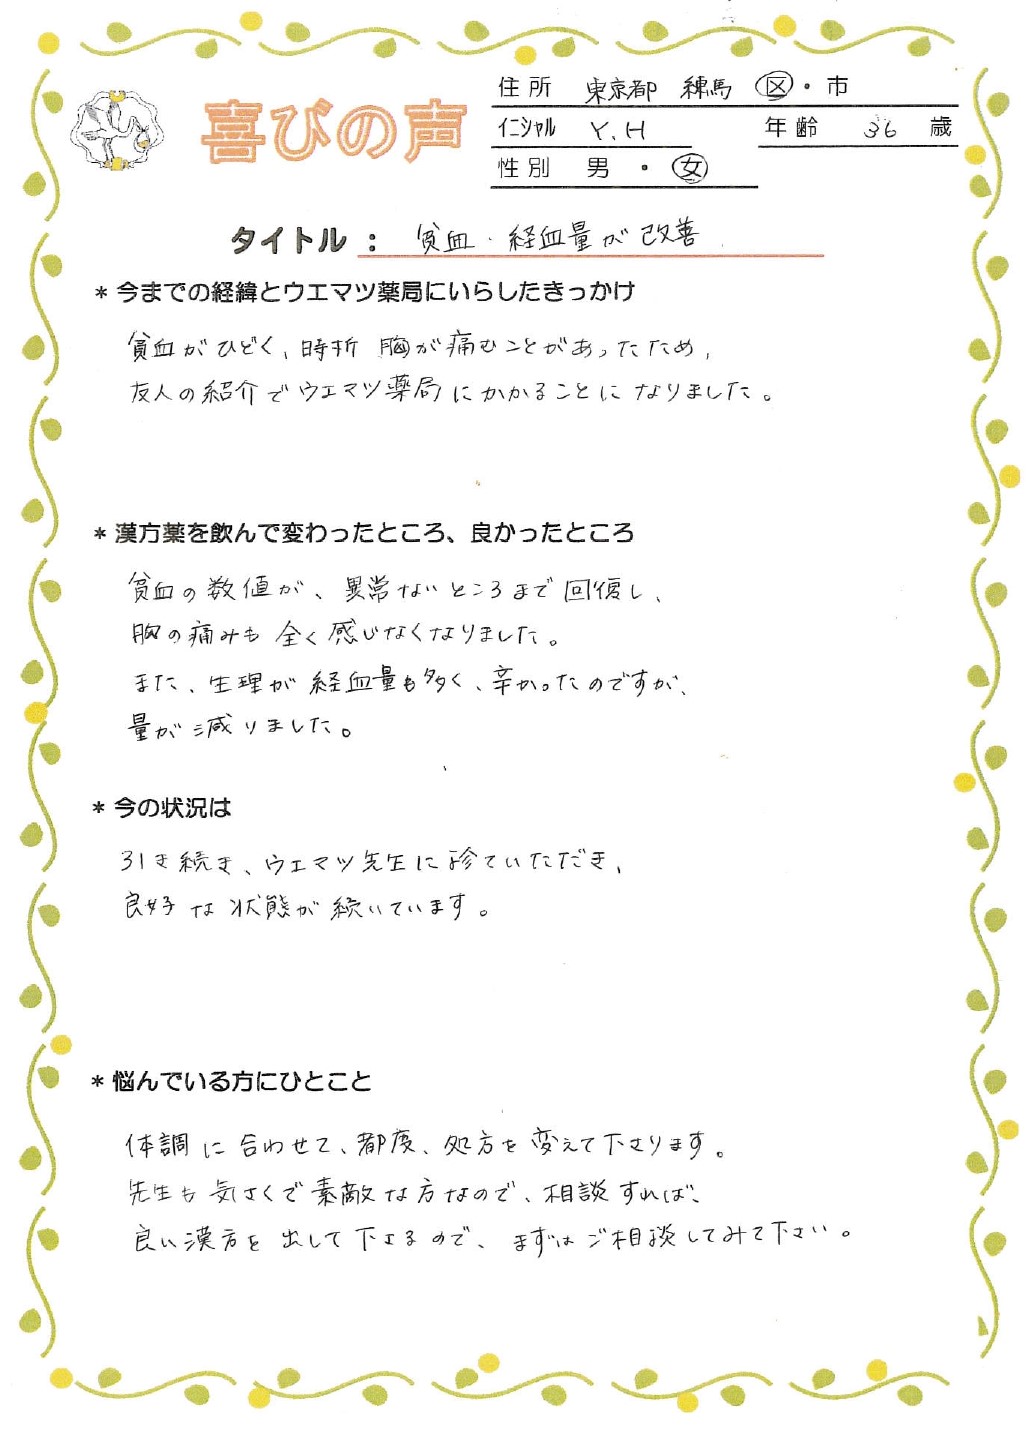 喜びの声
住所 東京都 練馬 区・市
イニシャル Y.H 年齢 36 歳
性別 男・女
タイトル： 貧血・経血量が改善
＊今までの経緯とウエマツ薬局にいらしたきっかけ
貧血がひどく、時折 胸が痛むことがあったため、
友人の紹介でウエマツ薬局にかかることになりました。
＊漢方薬を飲んで変わったところ、良かったところ
貧血の数値が、異常ないところまで回復し、
胸の痛みも全く感じなくなりました。
また、生理が経血量も多く、辛かったのですが、
量が減りました。
＊今の状況は
引き続き、ウエマツ先生に診ていただき、
良好な状態が続いています。
＊悩んでいる方にひとこと
体調に合わせて、都度、処方を変えて下さります。
先生も気さくで素敵な方なので、相談すれば、
良い漢方を出して下さるので、まずはご相談してみて下さい。